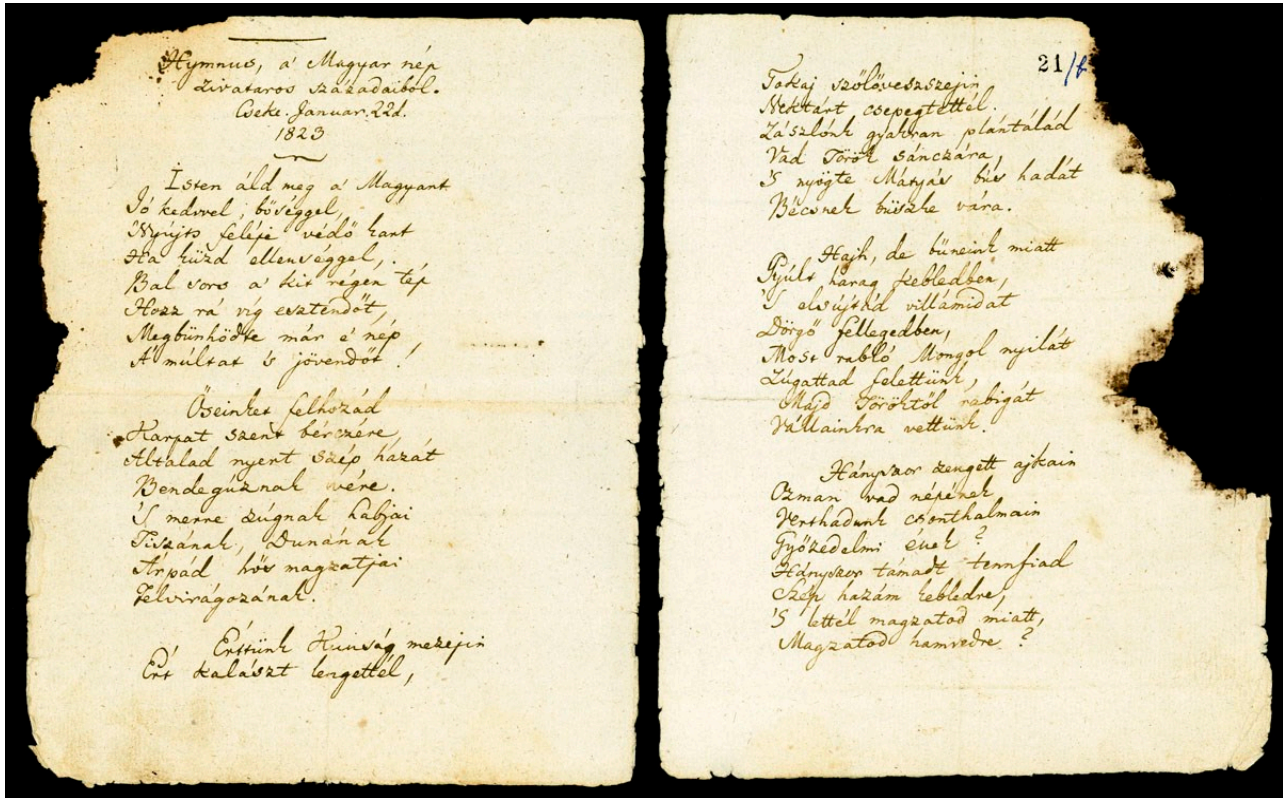 Hymnus, a' Magyar nép
zivataros századaiból.
Cseke. Januar. 22d.
1823
Isten áld meg a' Magyart
Jó kedvvel, bőséggel,
Nyújts feléje védő kart
Ha küzd ellenséggel,
Bal sors a' kit régen tép
Hozz rá víg esztendőt,
Megbünhődte már e' nép
A' múltat 's jövendőt!
Őseinket felhozád
Kárpát szent bérczére
Általad nyert szép hazát
Bendegúznak vére.
'S merre zúgnak habjai
Tiszának, Dunának
Árpád hős magzatjai
Felvirágozának.
Értünk Kunság mezejin
Ért kalászt lengettél,
21/b
Tokaj szőlővesszejin
Nektárt csepegtettél.
Zászlónk gyakran plántálád
Vad Török sánczára,
'S nyögte Mátyás bús hadát
Bécsnek büszke vára.
Hajh, de bűneink miatt
Gyúlt harag kebledben,
'S elsújtád villámidat
Dörgő fellegedben,
Most rabló Mongol nyilát
Zúgattad felettünk,
Majd Töröktől rabigát
Vállainkra vettünk.
Hányszor zengett ajkain
Ozman vad népének
Vert hadunk csonthalmain
Győzedelmi ének?
Hányszor támadt tennfiad
Szép hazám kebledre,
'S lettél magzatod miatt,
Magzatod hamvedre?